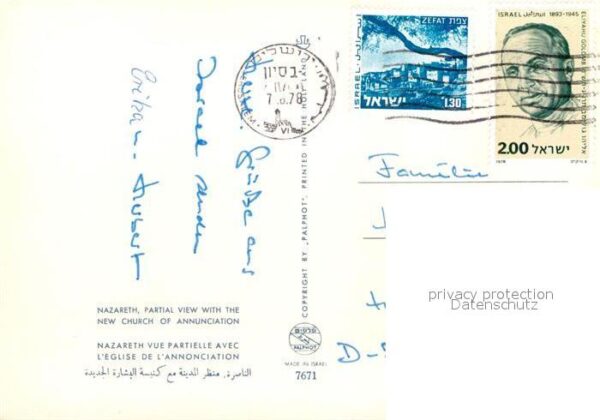 Grüße aus
Israel senden
Erika u. Hubert
NAZARETH, PARTIAL VIEW WITH THE
NEW CHURCH OF ANNUNCIATION
NAZARETH VUE PARTIELLE AVEC
L'ÉGLISE DE L'ANNONCIATION
الناصرة، منظر المدينة مع كنيسة البشارة الجديدة
COPYRIGHT BY „PALPHOT", PRINTED IN THE HOLY LAND
PALPHOT
MADE IN ISRAEL
7671
ירושלים
בסיון
7.6.78
VI
ZEFAT צפת
ISRAEL
ישראל 1.30
ISRAEL 1893-1945
2.00 ישראל
1978
Familie
D-
privacy protection
Datenschutz